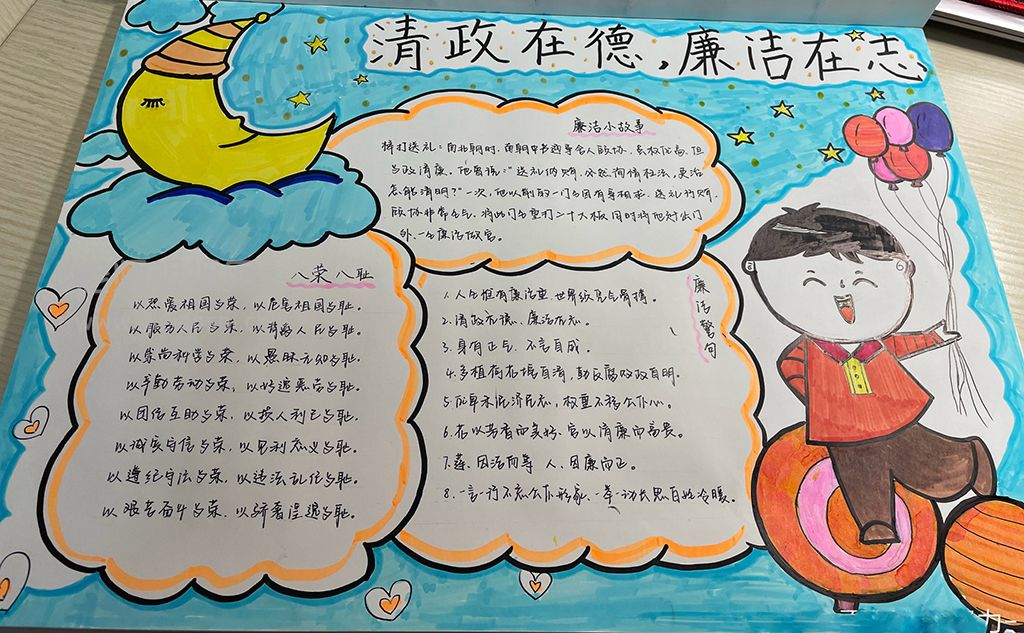 清政在德,廉洁在志
廉洁小故事
棒打送礼：南北朝时，南朝中书通事舍人顾协，气权位高，但
为政清廉。他曾说："送礼仍贿，必然徇情枉法，更治
怎能清明？"一次，他以前的一门 因有事相求，送礼行贿，
顾协非常生气，将此门 重打二十大板，同时将他赶出门
外，一生廉洁做官。
八荣八耻
以热爱祖国为荣，以危害祖国为耻。
以服务人民为荣，以背离人民为耻。
以崇尚科学为荣，以愚昧无知为耻。
以辛勤劳动为荣，以好逸恶劳为耻。
以团结互助为荣，以损人利己为耻。
以诚实守信为荣，以见利忘义为耻。
以遵纪守法为荣，以违法乱纪为耻。
以艰苦奋斗为荣，以骄奢淫逸为耻。
廉洁警句
1.人生惟有廉洁重，世界须凭气骨撑。
2.清政在德、廉洁在志。
3.身有正气，不言自成。
4.多植荷花塘自清，勤反腐败政自明。
5.位卑未泯济民志，权重不移公仆心。
6.花以芳香而美好，官以清廉而高贵。
7.莲，因洁而尊 人，因廉而正。
8.一言一行不忘公仆形象，一举一动长思百姓冷暖。